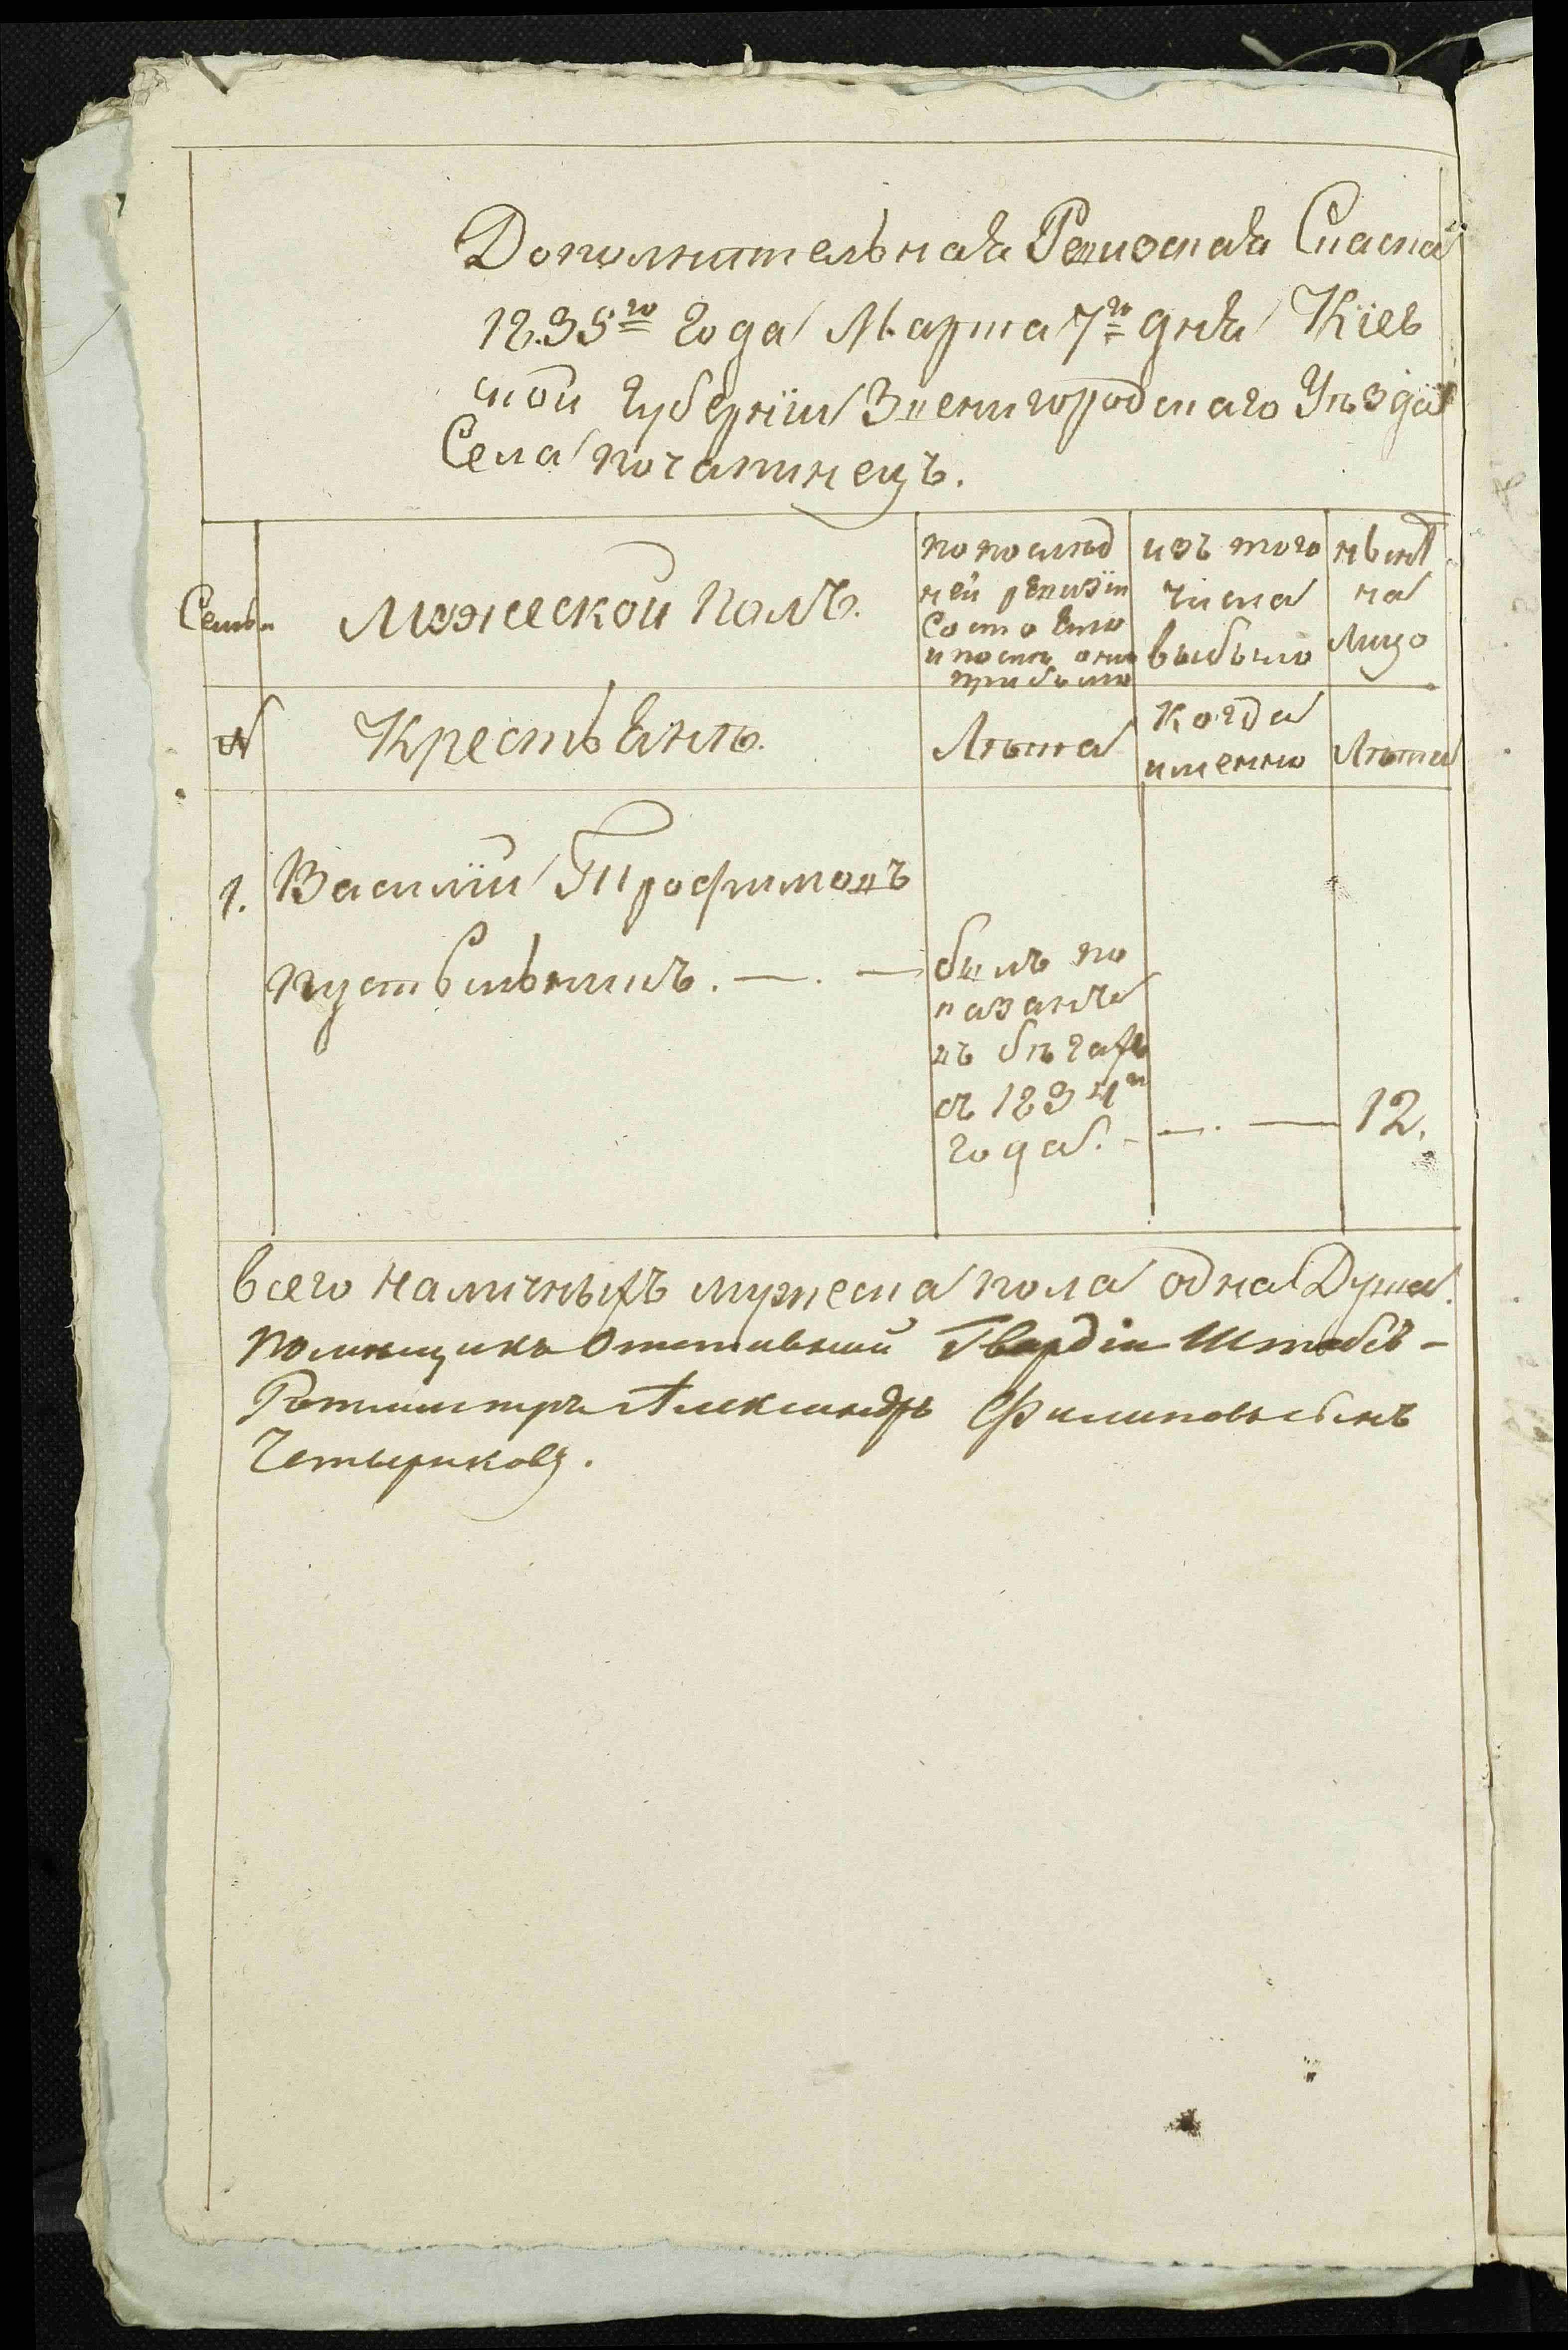 Дополнительная Ревизская Сказка
1835го года Марта 7го дня Кіев
ской губерніи Звенигородскаго Уѣзда
Села Почапинецъ.
Семьи
Мужеской Полъ.
по послѣд
ней ревизіи
Состояло
и послѣ оной
прибыло
изъ того
числа
выбыло
нынѣ
на
лицо
№
Крестьянъ.
Лѣта
Когда
именно
Лѣта
1. Василій Трофимовъ
Пустыльникъ. —. —
былъ по
казанъ
въ бѣгахъ
съ 1834го
года. — —. — 12.
Всего наличныхъ мужеска пола одна Душа.
Помѣщикъ Отставный Гвардіи Штабсъ-
Ротмистръ Александръ Филиповъ сынъ
Четвериковъ.